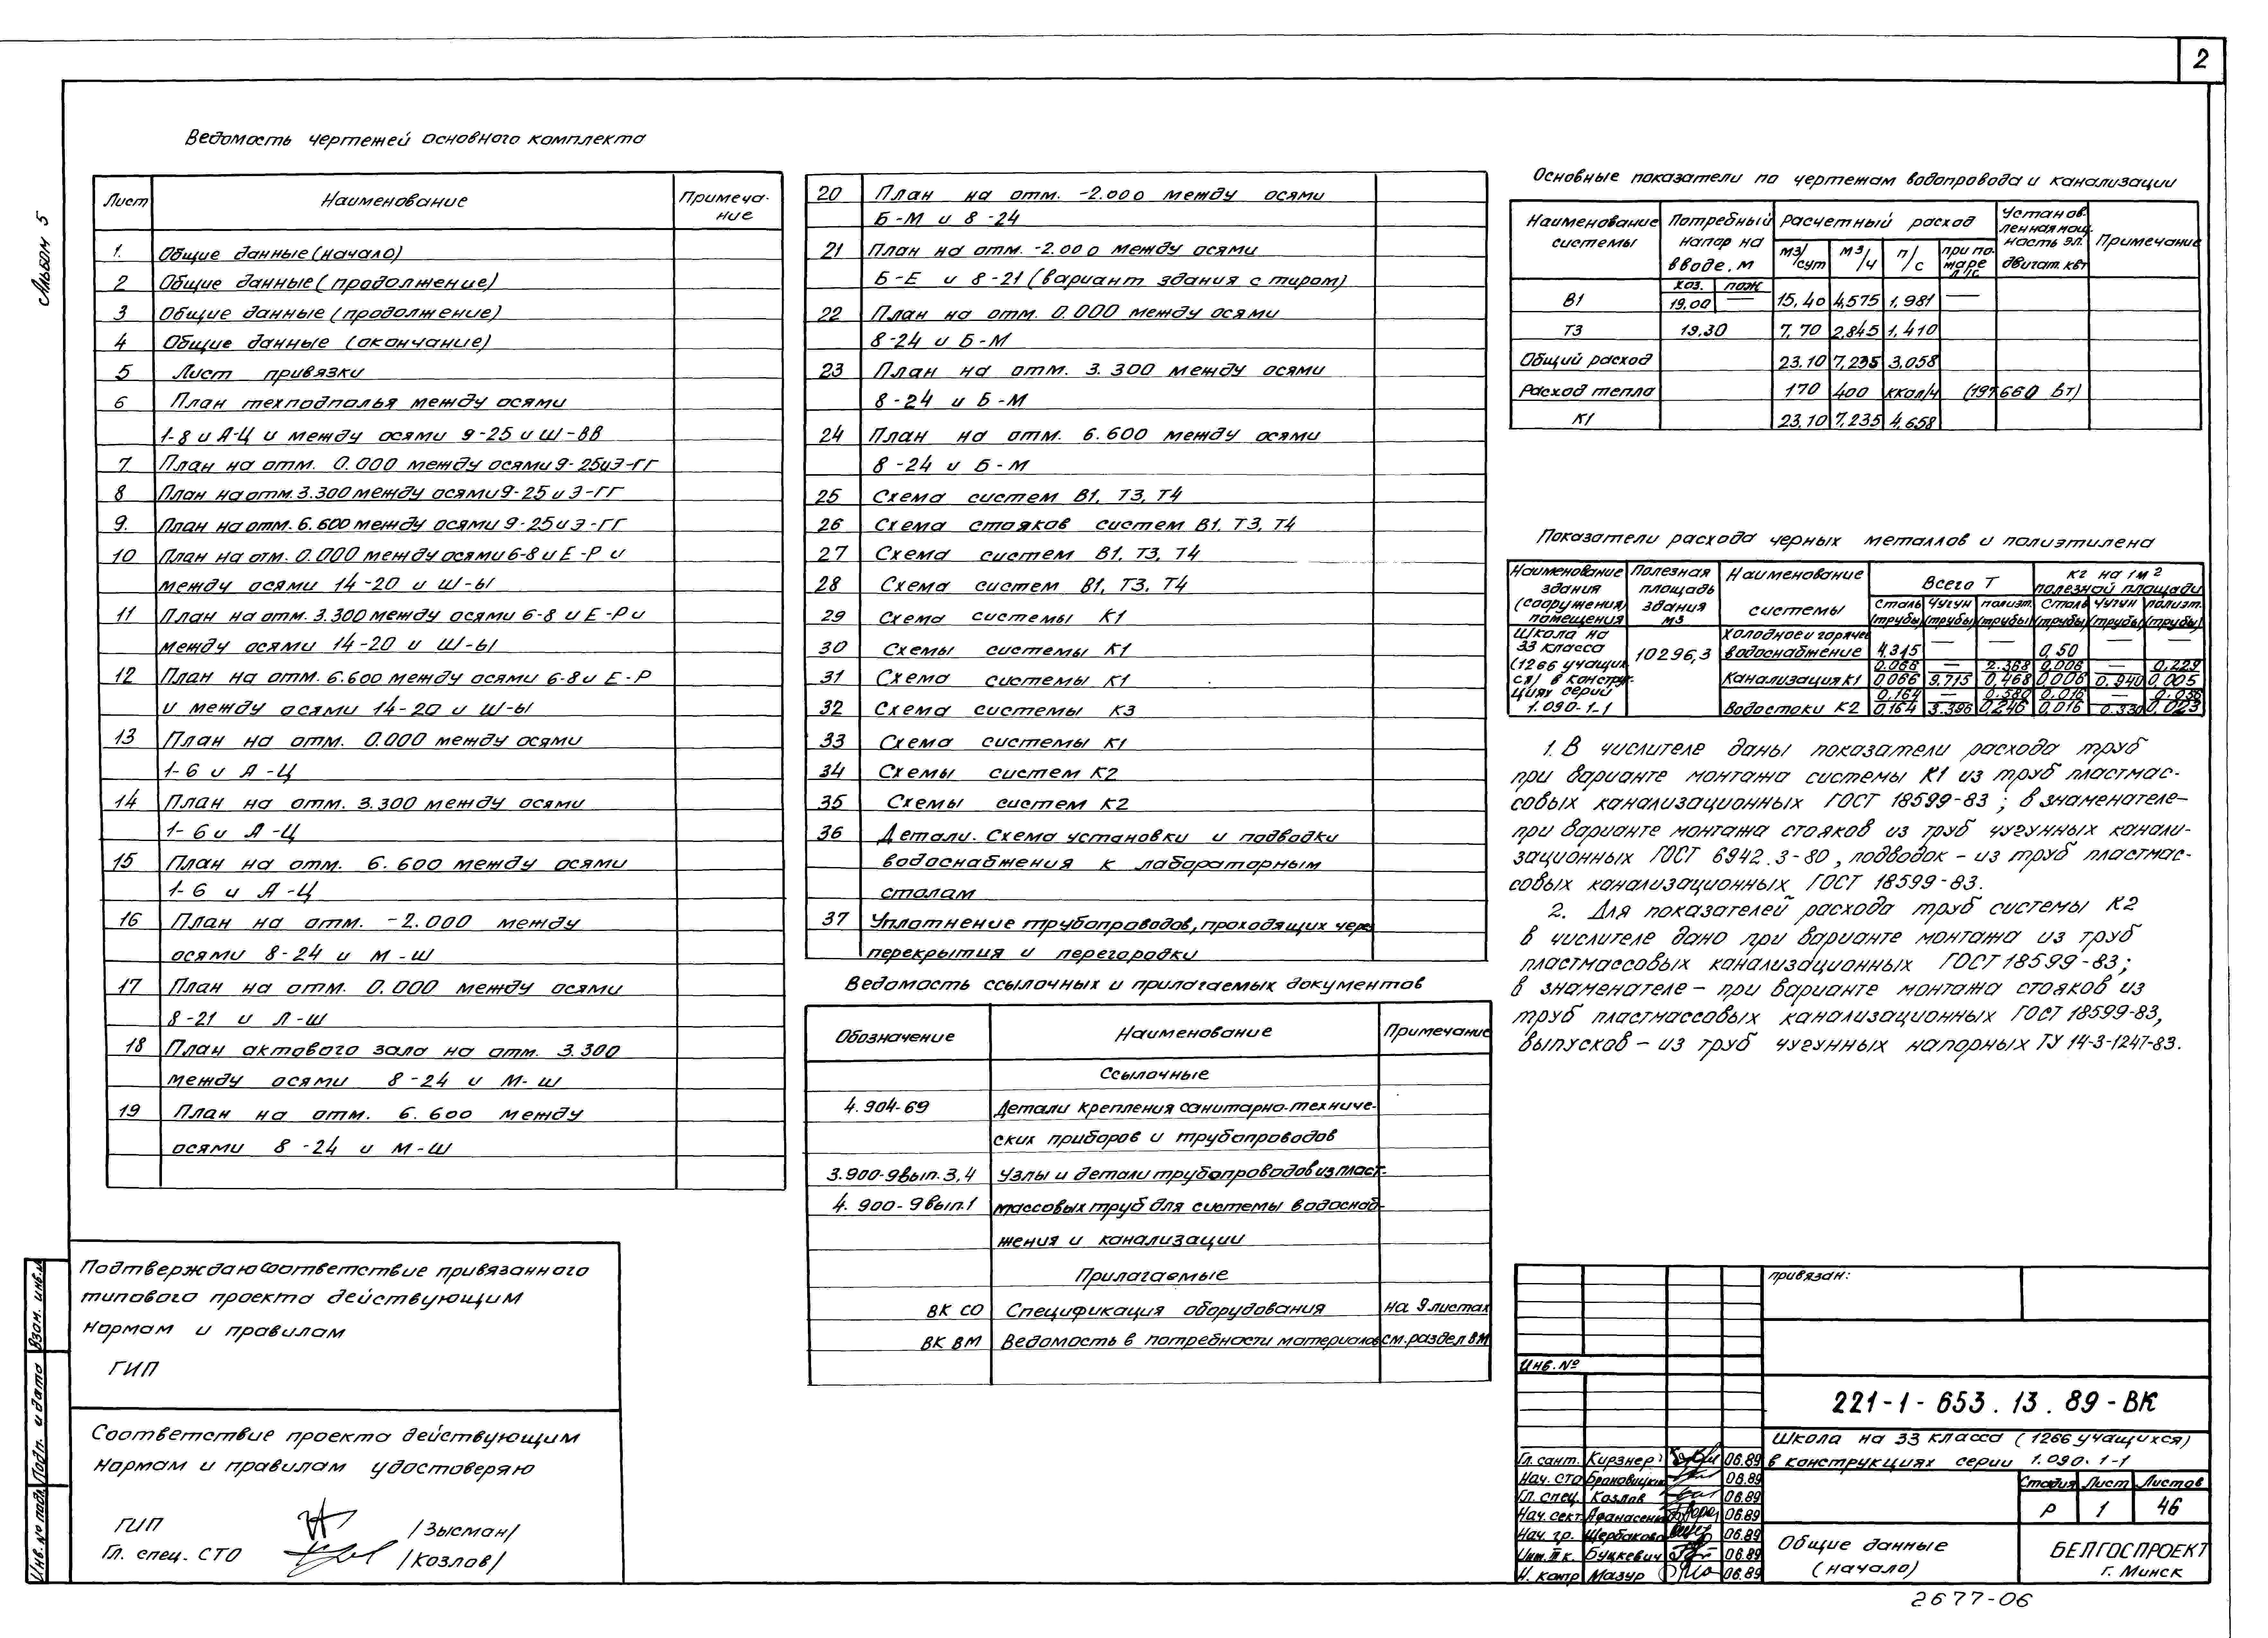 2
Альбом 5
Ведомость чертежей основного комплекта
Лист Наименование Примеча-
ние
1. Общие данные (начало)
2 Общие данные (продолжение)
3 Общие данные (продолжение)
4 Общие данные (окончание)
5 Лист привязки
6 План техподполья между осями
1-8 и А-Ц и между осями 9-25 и Ш-ВВ
7 План на отм. 0.000 между осями 9-25 и Э-ГГ
8 План на отм. 3.300 между осями 9-25 и Э-ГГ
9. План на отм. 6.600 между осями 9-25 и Э-ГГ
10 План на отм. 0.000 между осями 6-8 и Е-Р и
между осями 14-20 и Ш-Ы
11 План на отм. 3.300 между осями 6-8 и Е-Р и
между осями 14-20 и Ш-Ы
12 План на отм. 6.600 между осями 6-8 и Е-Р
и между осями 14-20 и Ш-Ы
13 План на отм. 0.000 между осями
1-6 и А-Ц
14 План на отм. 3.300 между осями
1-6 и А-Ц
15 План на отм. 6.600 между осями
1-6 и А-Ц
16 План на отм. -2.000 между
осями 8-24 и М-Ш
17 План на отм. 0.000 между осями
8-21 и Л-Ш
18 План актового зала на отм. 3.300
между осями 8-24 и М-Ш
19 План на отм. 6.600 между
осями 8-24 и М-Ш
20 План на отм. -2.000 между осями
Б-М и 8-24
21 План на отм. -2.000 между осями
Б-Е и 8-21 (вариант здания с тиром)
22 План на отм. 0.000 между осями
8-24 и Б-М
23 План на отм. 3.300 между осями
8-24 и Б-М
24 План на отм. 6.600 между осями
8-24 и Б-М
25 Схема систем В1, Т3, Т4
26 Схема стояков систем В1, Т3, Т4
27 Схема систем В1, Т3, Т4
28 Схема систем В1, Т3, Т4
29 Схема системы К1
30 Схемы системы К1
31 Схема системы К1
32 Схема системы К3
33 Схема системы К1
34 Схемы систем К2
35 Схемы систем К2
36 Детали. Схема установки и подводки
водоснабжения к лабораторным
столам
37 Уплотнение трубопроводов, проходящих чере
перекрытия и перегородки
Ведомость ссылочных и прилагаемых документов
Обозначение Наименование Примечание
Ссылочные
4.904-69 Детали крепления санитарно-техниче-
ских приборов и трубопроводов
3.900-9 вып.3,4 Узлы и детали трубопроводов из пласт-
4.900-9 вып.1 массовых труб для системы водоснаб-
жения и канализации
Прилагаемые
ВК СО Спецификация оборудования на 9 листах
ВК ВМ Ведомость в потребности материалов см. раздел ВМ
Основные показатели по чертежам водопровода и канализации
Наименование системы Потребный напор на вводе, м Расчетный расход Установ-ленная мощ-ность эл. двигат. кВт Примечание
м3/сут м3/ч л/с при по-жаре л/с
хоз. пож
В1 19.00 — 15,40 4,575 1,981 —
Т3 19.30 7,70 2,845 1,410
Общий расход 23.10 7,235 3,058
Расход тепла 170 400 ккал/ч (197 660 Вт)
К1 23.10 7,235 4,658
Показатели расхода черных металлов и полиэтилена
Наименование здания (сооружения) помещения Полезная площадь здания м3 Наименование системы Всего Т кг на 1м2 полезной площади
Сталь (трубы) Чугун (трубы) полиэт. (трубы) Сталь (трубы) Чугун (трубы) полиэт. (трубы)
Школа на 33 класса (1266 учащих-ся) в конструк-циях серии 1.090-1-1 10296,3
Холодное и горячее водоснабжение 4.315 — — 0,50 — —
Канализация К1 0.066 — 2.368 0.006 — 0.229
0,066 9.715 0,468 0,006 0.940 0,005
Водостоки К2 0,164 — 0.380 0.016 — 0.036
0,164 3.396 0,246 0,016 0.330 0,023
1. В числителе даны показатели расхода труб
при варианте монтажа системы К1 из труб пластмас-
совых канализационных ГОСТ 18599-83; в знаменателе-
при варианте монтажа стояков из труб чугунных канали-
зационных ГОСТ 6942.3-80, подводок - из труб пластмас-
совых канализационных ГОСТ 18599-83.
2. Для показателей расхода труб системы К2
в числителе дано при варианте монтажа из труб
пластмассовых канализационных ГОСТ 18599-83;
в знаменателе - при варианте монтажа стояков из
труб пластмассовых канализационных ГОСТ 18599-83,
выпусков - из труб чугунных напорных ТУ 14-3-1247-83.
Подтверждаю соответствие привязанного
типового проекта действующим
нормам и правилам
ГИП
Соответствие проекта действующим
нормам и правилам удостоверяю
ГИП /Зысман/
Гл. спец. СТО /Козлов/
Взам. инв.№
Подп. и дата
Инв. № подл
привязан:
Инв. №
221-1-653.13.89-ВК
Школа на 33 класса (1266 учащихся)
в конструкциях серии 1.090.1-1
Гл. сант. Кирзнер 06.89
Нач. СТО Брановицкий 06.89
Гл. спец. Козлов 06.89
Нач. сект. Афанасенко 06.89
Нач. гр. Щербакова 06.89
Инж. II к. Буцкевич 06.89
Н. контр Мазур 06.89
Стадия Лист Листов
Р 1 46
Общие данные
(начало)
БЕЛГОСПРОЕКТ
г. Минск
2677-06